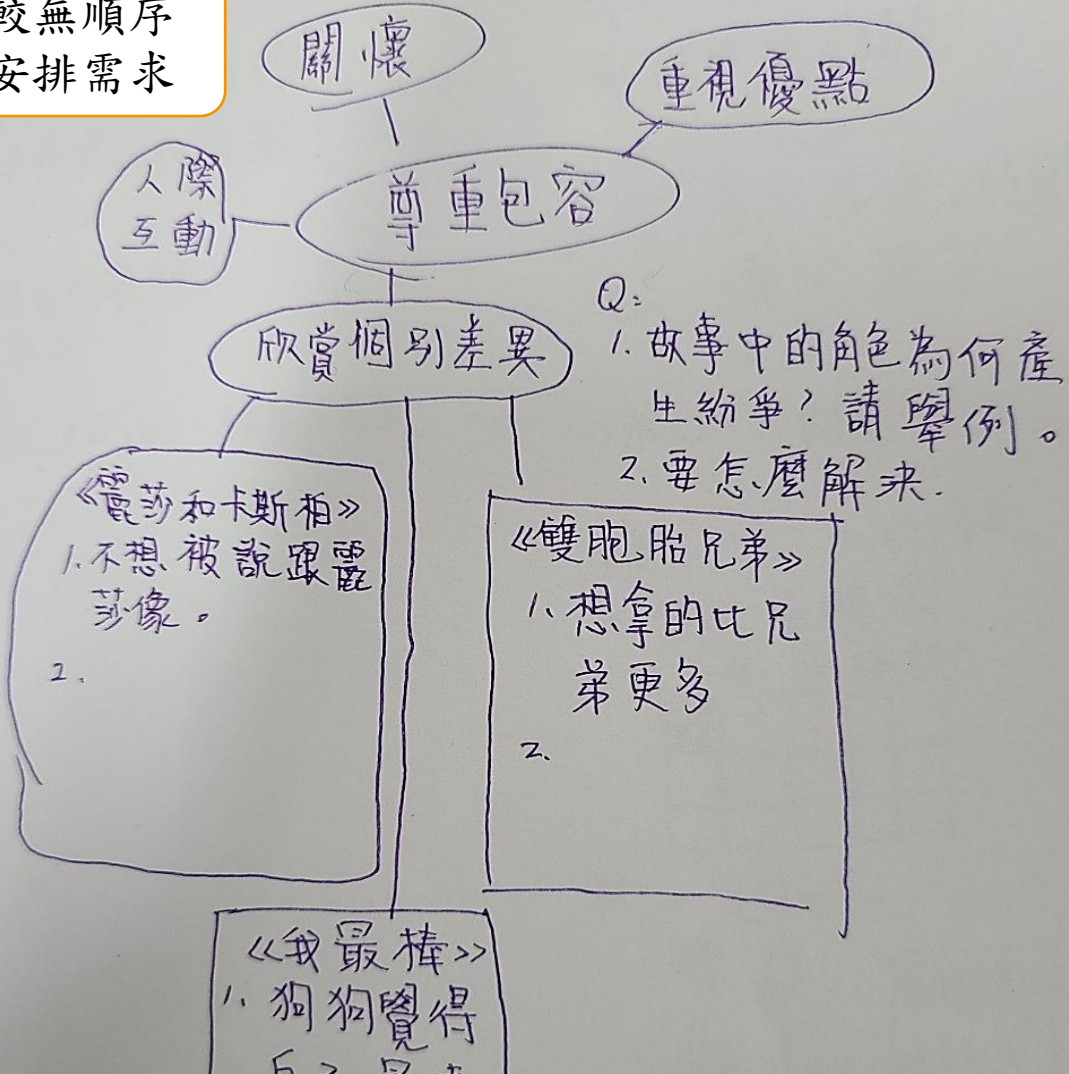 較無順序
安排需求
關懷
重視優點
人際
互動
尊重包容
欣賞個別差異
Q:
1. 故事中的角色為何產
生紛爭?請舉例。
2. 要怎麼解決.
《麗莎和卡斯柏》
1. 不想被說跟麗
莎像。
2.
《雙胞胎兄弟》
1. 想拿的比兄
弟更多
2.
《我最棒》
1. 狗狗覺得